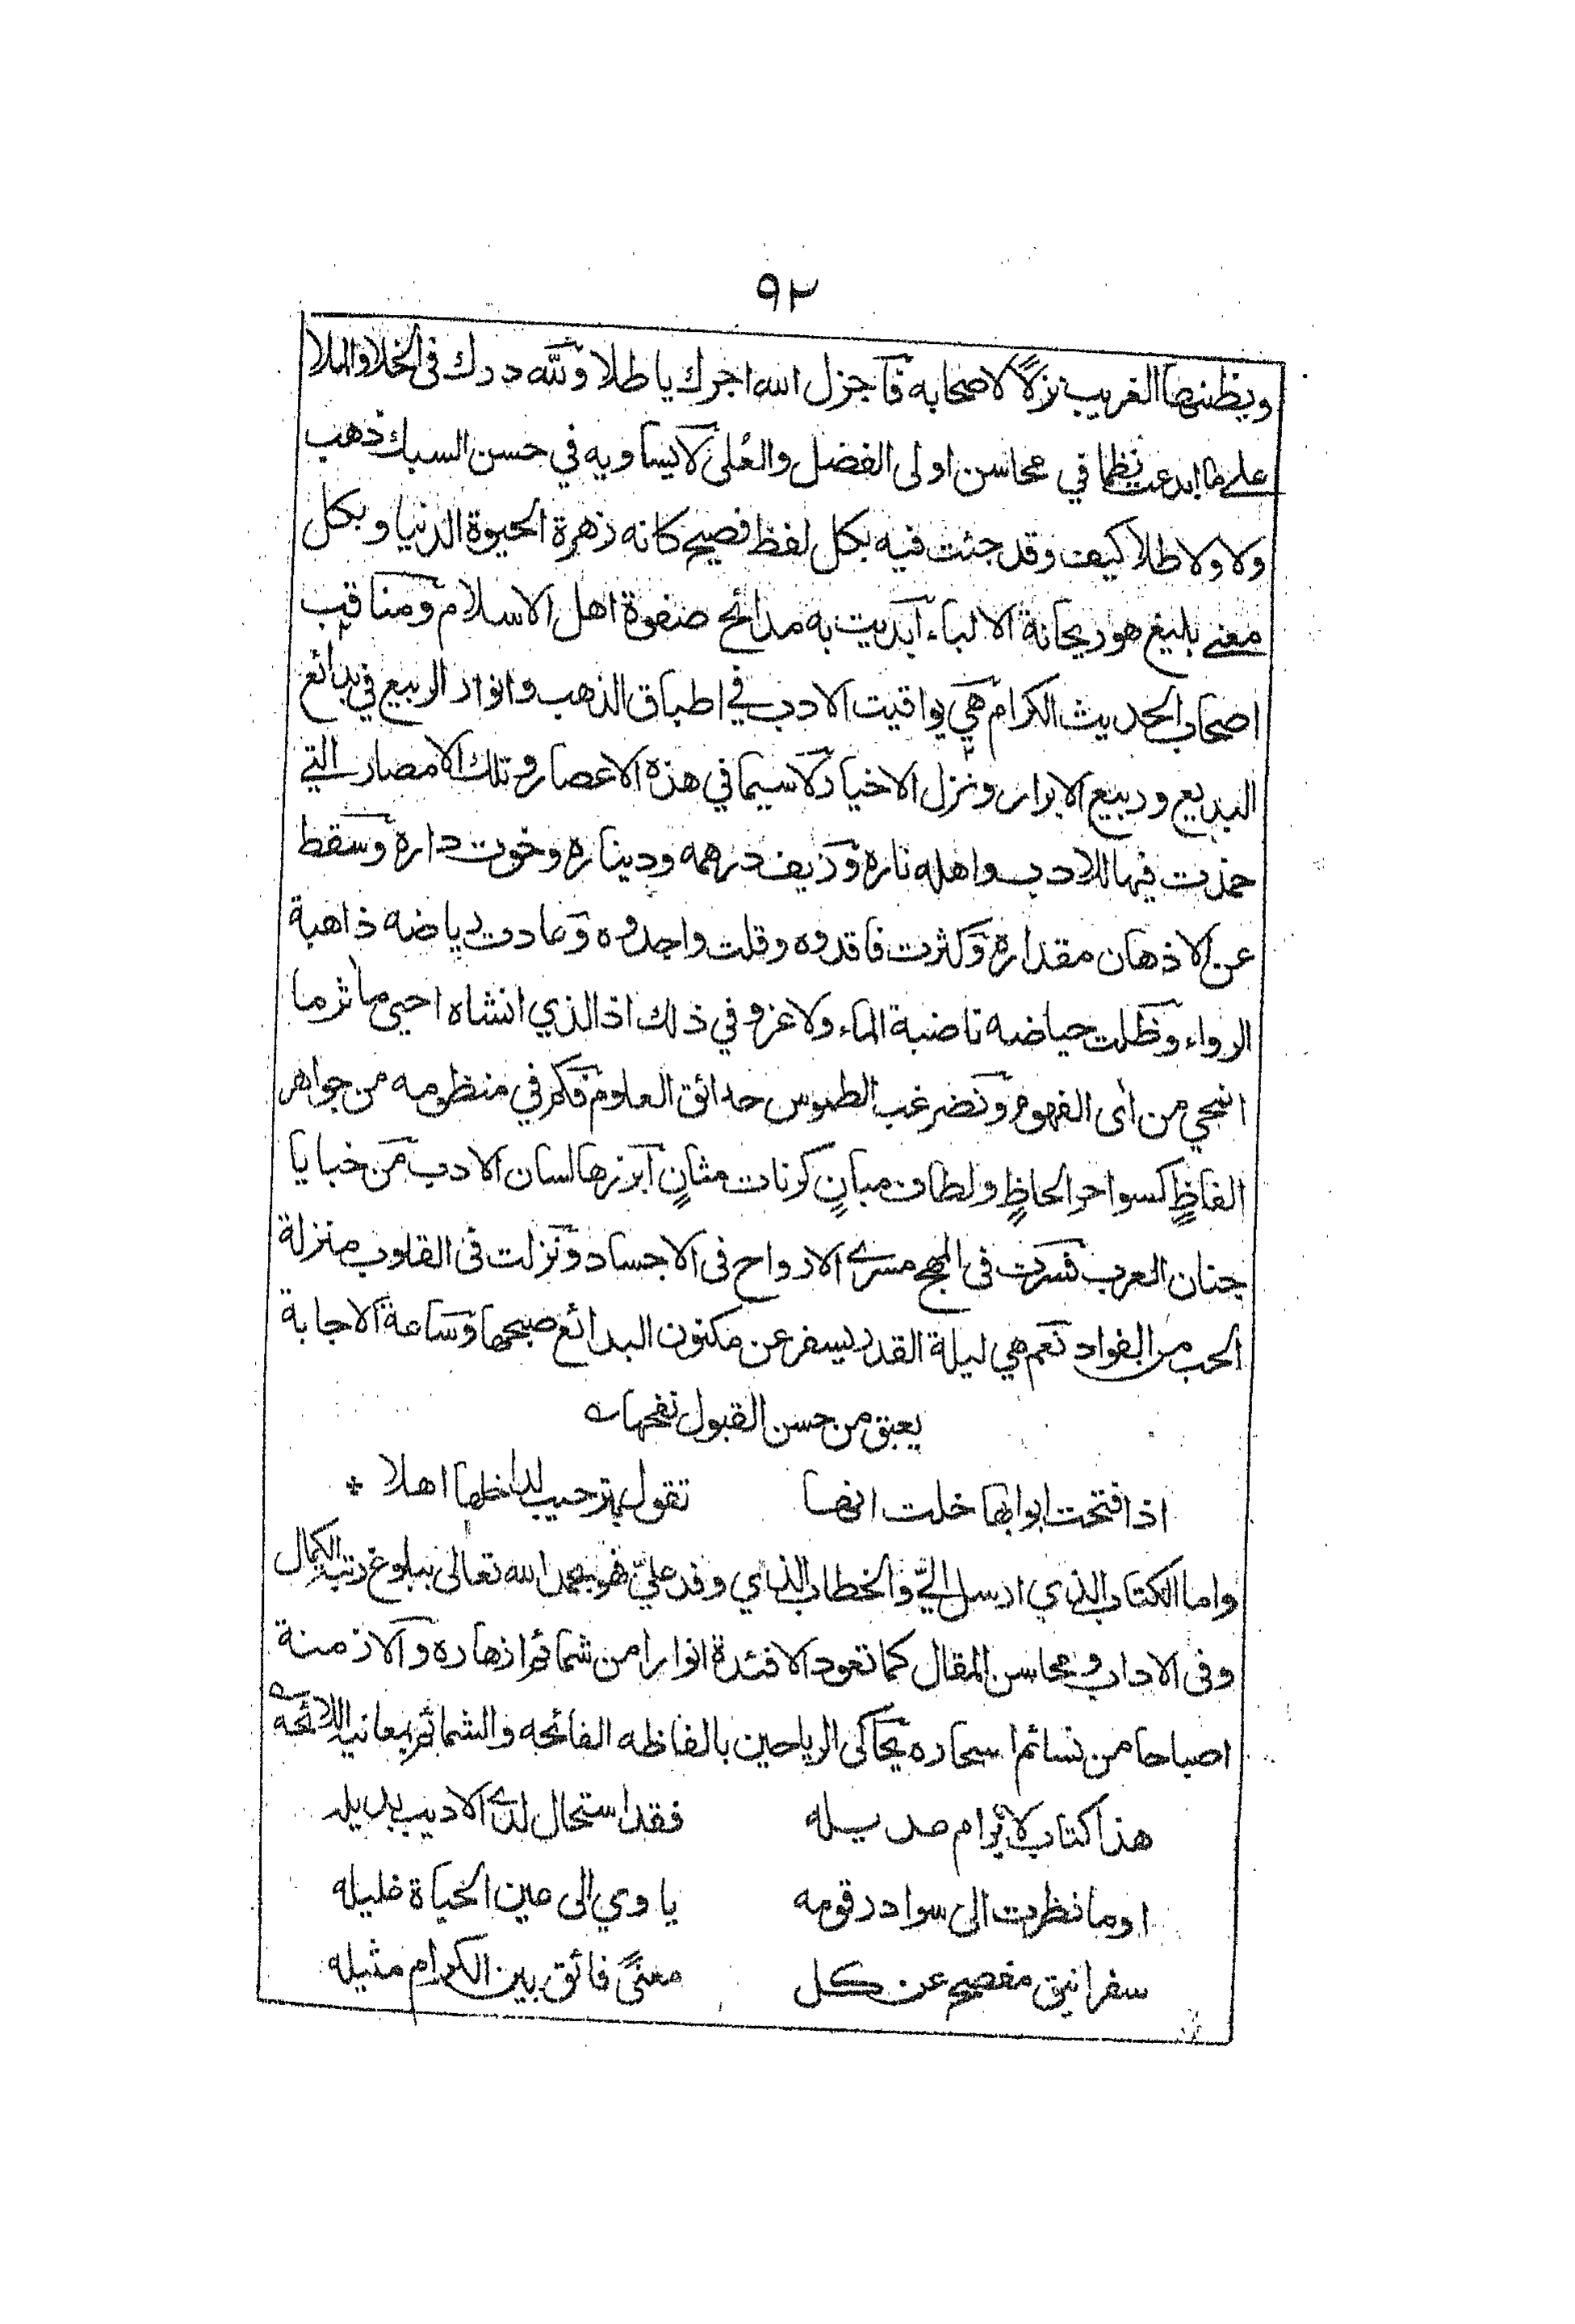 ٩٢
ويظنها الغريب نزلاً لاصحابه فاجزل الله اجرك يا طلا ولله درك في الخلا والملا
على ما ابدعت نظما في محاسن اولى الفضل والعُلى لا يساويه في حسن السبك ذهب
ولا ولا طلا كيف وقد جئت فيه بكل لفظ فصيح كانه زهرة الحيوة الدنيا وبكل
معنى بليغ هو ريحانة الالباء ابديت به مدائح صفوة اهل الاسلام ومناقب
اصحاب الحديث الكرام هي يواقيت الادب في اطباق الذهب وانوار الربيع في بدائع
البديع وربيع الابرار ونزل الاخيار لا سيما في هذه الاعصار وتلك الامصار التي
خمدت فيها للادب واهله ناره وزيف درهمه وديناره وخوت داره وسقط
عن الاذهان مقداره وكثرت فاقدوه وقلت واجدوه وعادت رياضه ذاهبة
الرواء وظلت حياضه ناضبة الماء ولا غرو في ذلك اذ الذي انشاه احيى ماثر ما
انمحي من أى الفهوم ونضر غب الطموس حدائق العلوم فكم في منظومه من جواهر
الفاظٍ كسواحر الحاظٍ ولطاف مبانٍ كرنات مثانٍ ابرزها لسان الادب من خبايا
جنان العرب فسرت في المهج مسرى الارواح فى الاجساد ونزلت فى القلوب منزلة
الحب من الفواد نعم هي ليلة القدر يسفر عن مكنون البدائع صبحها وساعة الاجابة
يعبق من حسن القبول نفحها
اذا فتحت ابوابها خلت انها تقول بترحيب لداخلها اهلا *
واما الكتاب الذي ارسل اليّ والخطاب الذي وفد عليّ فهو بحمد الله تعالى ببلوغ رتبة الكمال
وفى الاداب ومحاسن المقال كما تعود الافئدة انوارا من شمائم ازهاره والازمنة
اصباحا من نسائم اسحاره يحاكى الرياحين بالفاظه الفائحه والشمائم بمعانيه اللائحه
هذا كتاب لا يرام عديله فقد استحال لدى الاديب بديله
او ما نظرت الى سواد رقومه ياوي الى عين الحياة غليله
سفر انيق مفصح عن كل معنىً فائق بين الكرام مثيله